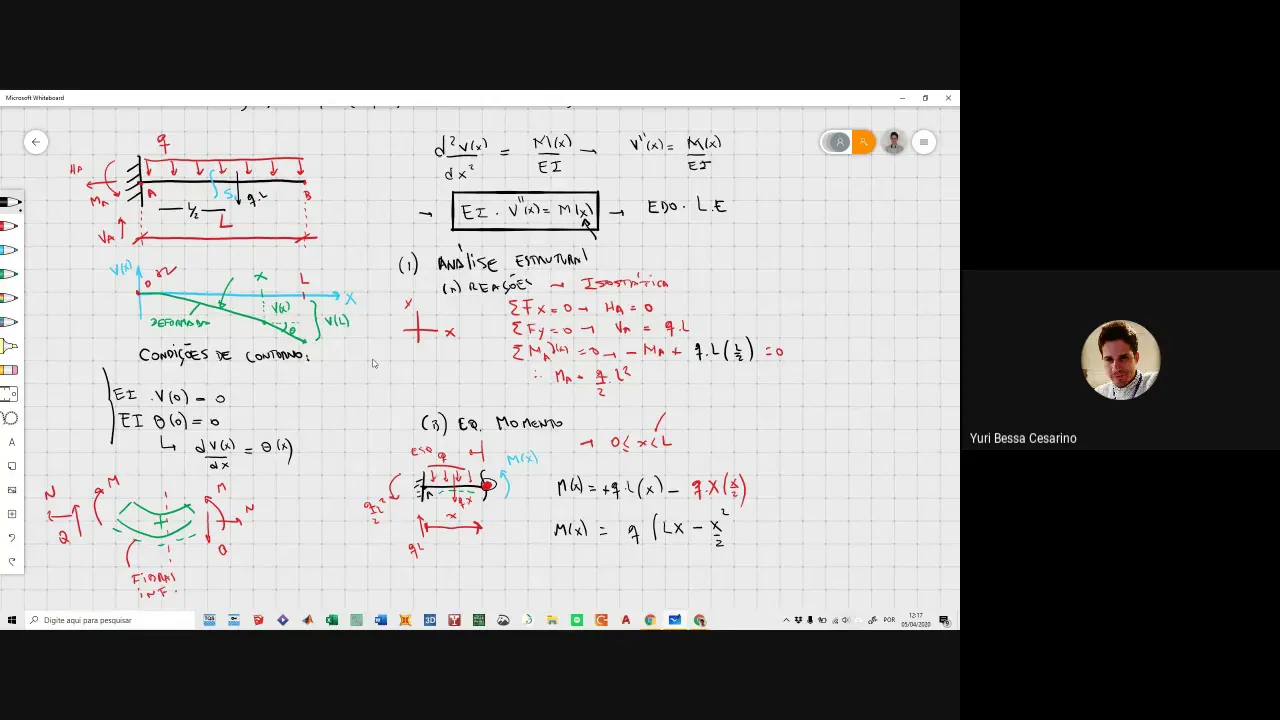 Microsoft Whiteboard
q
HA
MA
A
B
S
q.L
L/2
L
VA
V(x)
0
x
L
X
V(x)
V(L)
θ
DEFORMADA
CONDIÇÕES DE CONTORNO:
EI . V(0) = 0
EI θ(0) = 0
↳ dV(x)/dx = θ(x)
N
M
Q
M
N
Q
+
FIBRAS
INF.
d²V(x)/dx² = M(x)/EI → V''(x) = M(x)/EI
→ EI . V''(x) = M(x) → EDO. L.E
(1) ANÁLISE ESTRUTURAL
(A) REAÇÕES → ISOSTÁTICA
Y
X
ΣFx = 0 → HA = 0
ΣFy = 0 → VA = q.L
= 0 → - MA + q.L(L/2) = 0
∴ MA = q/2 L²
(B) EQ. MOMENTO
→ 0 ≤ x ≤ L
ESQ
q
M(x)
A
qx
x
qL
qL²/2
M(x) = +q.L(x) - q.X(x/2)
M(x) = q (LX - x²/2
Yuri Bessa Cesarino
Digite aqui para pesquisar
3D
POR
12:17
05/04/2020